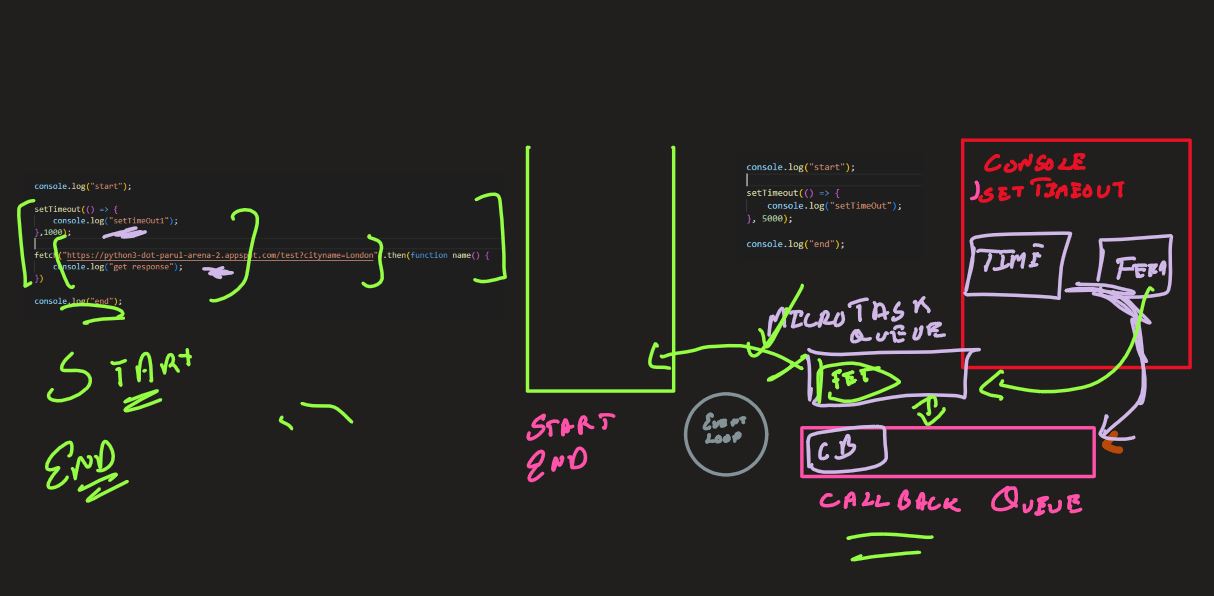 console.log("start");
setTimeout(() => {
console.log("setTimeOut1");
},1000);
fetch("https://python3-dot-parul-arena-2.appspot.com/test?cityname=London").then(function name() {
console.log("get response");
})
console.log("end");
START
END
START
END
console.log("start");
setTimeout(() => {
console.log("setTimeOut");
}, 5000);
console.log("end");
CONSOLE
SETTIMEOUT
TIME
MICROTASK
QUEUE
FET
EVENT
LOOP
CB
CALLBACK QUEUE